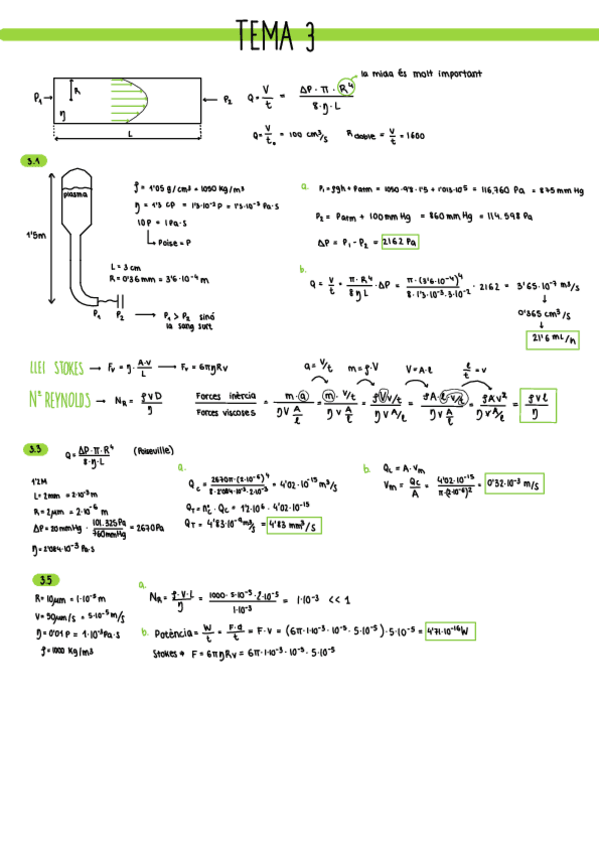 TEMA 3
la mida és molt important
P₁ → R η L ← P₂
Q = V/t = ΔP · π · R⁴ / 8 · η · L
Q = V/t. = 100 cm³/s R doble = V/t = 1600
3.1
plasma
1'5m
ρ = 1'05 g/cm³ = 1050 Kg/m³
η = 1'3 cP = 1'3·10⁻² P = 1'3·10⁻³ Pa·s
10P = 1Pa·s
↳ Poise = P
L = 3 cm
R = 0'36 mm = 3'6·10⁻⁴ m
P₁ P₂ → P₁ > P₂ sinó
la sang surt
a. P₁ = ρgh + Parm = 1050·9'8·1'5 + 1'013·10⁵ = 116,760 Pa = 875 mm Hg
P₂ = Parm + 100 mm Hg = 860 mm Hg = 114.598 Pa
ΔP = P₁ - P₂ = 2162 Pa
b.
Q = V/t = π·R⁴ / 8ηL · ΔP = π·(3'6·10⁻⁴)⁴ / 8·1'3·10⁻³·3·10⁻² · 2162 = 3'65·10⁻⁷ m³/s
↓
0'365 cm³/s
↓
21'6 mL/h
LLEI STOKES → Fᵥ = η · A·v / L → Fᵥ = 6πηRv
a = v/t m = ρ·V V = A·l l/t = v
Nº REYNOLDS → N_R = ρvD / η Forces inèrcia / Forces viscoses = m·a / ηv A/l = m · v/t / ηv A/l = ρV v/t / ηv A/l = ρA·l·v/t / ηv A/l = ρAv² / ηv A/l = ρvl / η
3.3
Q = ΔP·π·R⁴ / 8·η·L (Poiseuille)
1'2M
L = 2mm = 2·10⁻³ m
R = 2μm = 2·10⁻⁶ m
ΔP = 20mmHg · 101.325Pa / 760mmHg = 2670Pa
η = 2'084·10⁻³ Pa·s
a.
Q_c = 2670π·(2·10⁻⁶)⁴ / 8·2'084·10⁻³·2·10⁻³ = 4'02·10⁻¹⁵ m³/s
Q_T = nº · Q_c = 1'2·10⁶ · 4'02·10⁻¹⁵
Q_T = 4'83·10⁻⁹ m³/s = 4'83 mm³/s
b. Q_c = A·v_m
v_m = Q_c / A = 4'02·10⁻¹⁵ / π·(2·10⁻⁶)² = 0'32·10⁻³ m/s
3.5
R = 10μm = 1·10⁻⁵ m
V = 50μm/s = 5·10⁻⁵ m/s
η = 0'01 P = 1·10⁻³ Pa·s
ρ = 1000 Kg/m³
a.
N_R = ρ·v·L / η = 1000·5·10⁻⁵·2·10⁻⁵ / 1·10⁻³ = 1·10⁻³ << 1
b. Potència = W/t = F·d / t = F·v = (6π·1·10⁻³·10⁻⁵·5·10⁻⁵)·5·10⁻⁵ = 4'71·10⁻¹⁶W
Stokes → F = 6πηRv = 6π·1·10⁻³·10⁻⁵·5·10⁻⁵